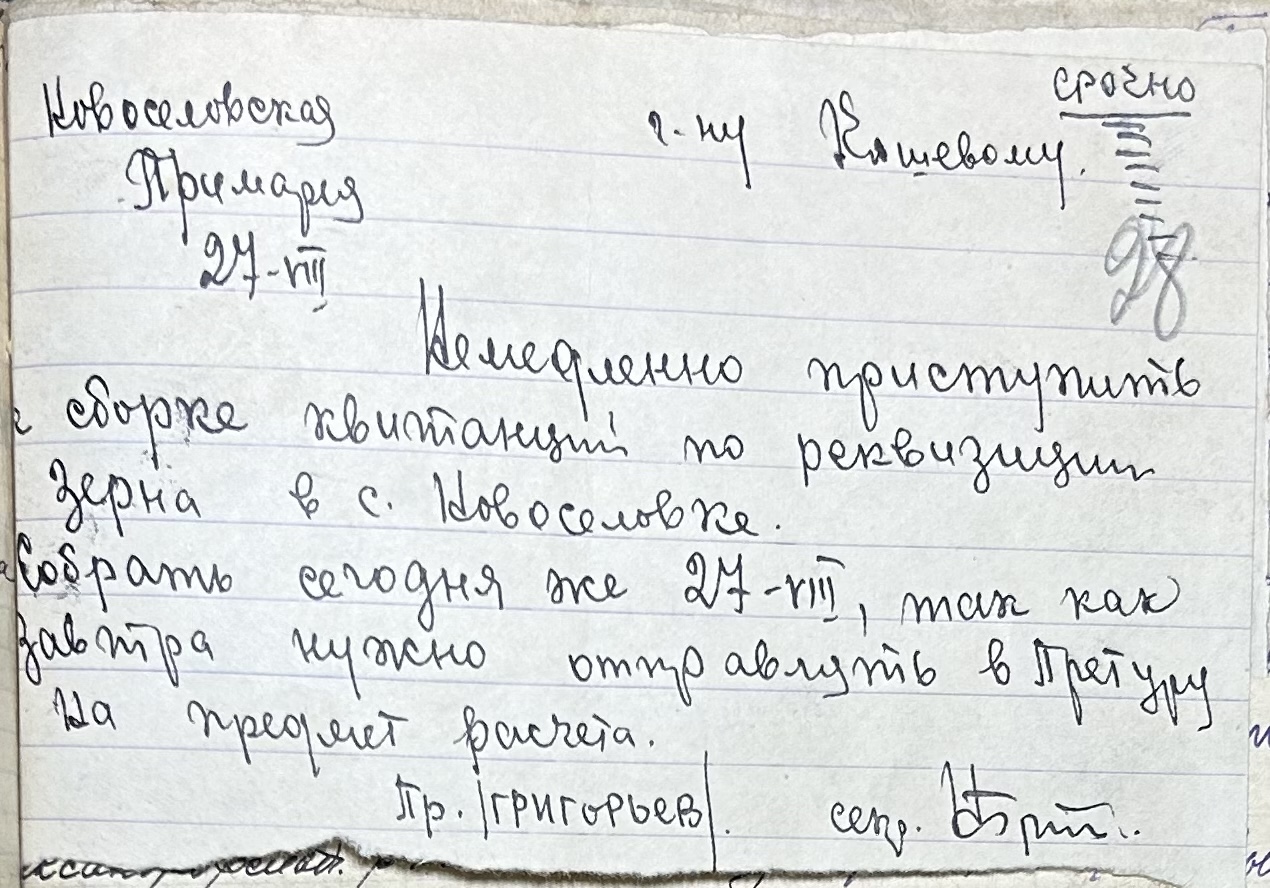 срочно
Новоселовская г-ну Кяшевому.
Примария
27-VIII
28
Немедленно приступить
к сборке квитанций по реквизиции
зерна в с. Новоселовке.
Собрать сегодня же 27-VIII, так как
завтра нужно отправлять в Претуру
на предмет расчета.
Пр. /ГРИГОРЬЕВ/. секр.